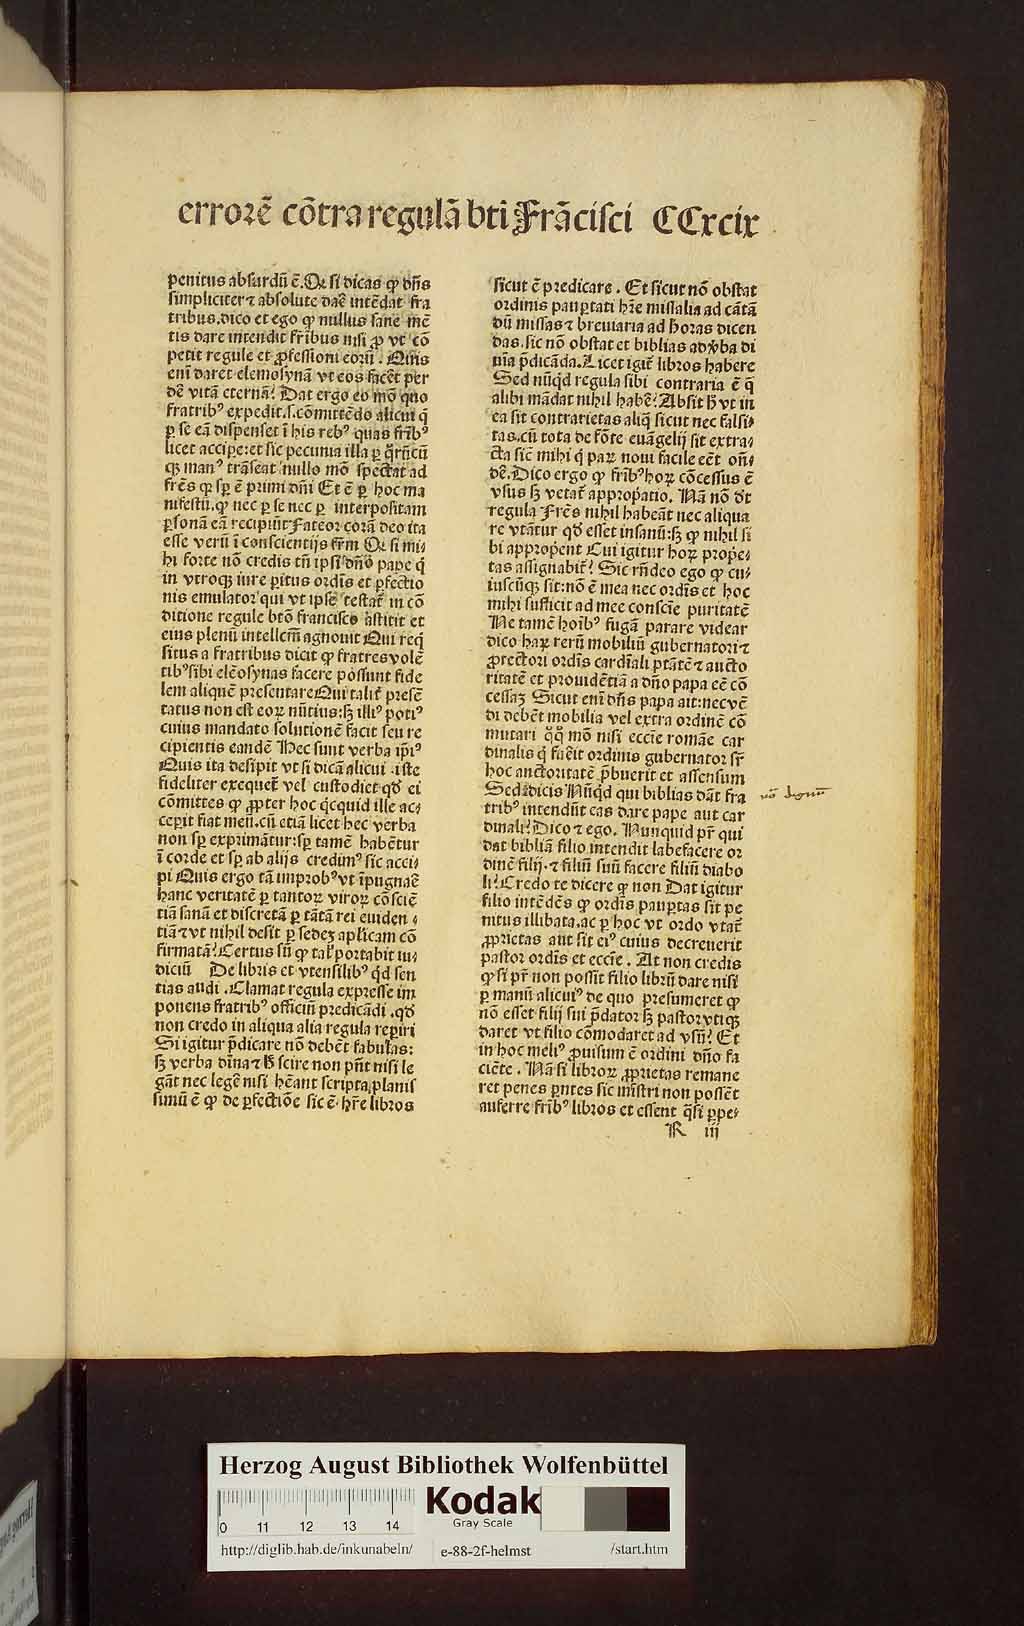 errorē cōtra regulā bti Frācisci CCxcix
penitus absurdū ē. Qꝛ si dicas ꝙ dn̄s
simpliciter ⁊ absolute daē intēdat fra
tribus. dico et ego ꝙ nullus sane mē
tis dare intendit fr̄ibus nisi ꝓ vt cō
petit regule et ꝓfessioni eorū. Quis
eni daret elemosynā vt eos facēt per
dē vitā eternā? Dat ergo eo mō quo
fratribꝰ expedit. s. cōmittēdo alicui q̄
ꝑ se eā dispenset ī his rebꝰ quas fr̄ibꝰ
licet accipe: et sic pecunia illa ꝑ q̄rūcū
qꝫ manꝰ trāseat nullo mō spectat ad
fr̄es ꝙ sꝑ ē primi dn̄i Et ē ꝑ hoc ma
nifestū. ꝙ nec ꝑ se nec ꝑ interpositam
ꝑsonā eā recipiūt Fateor corā deo ita
esse verū ī conscientijs fr̄m Qꝛ si mi⸗
hi forte nō credis tn̄ ipsi dn̄o pape q̄
in vtroqꝫ iure ꝑitus ordīs et ꝑfectio
nis emulator qui vt ipse testat̄ in cō
ditione regule btō francisco astitit et
eius plenū intellcm̄ agnouit Qui req̄
situs a fratribus dicit ꝙ fratres volē
tibꝰ sibi elēosynas facere possunt fide
lem aliquē presentare Qui talit̄ presē
tatus non est eoꝝ nūtius: sꝫ illiꝰ potiꝰ
cuius mandato solutionē facit seu re
cipientis eandē Hec sunt verba ip̄iꝰ
Quis ita desipit vt si dicā alicui . iste
fideliter exequet̄ vel custodiet qd̄ ei
cōmittes ꝙ ꝓpter hoc q̄cquid ille ac⸗
ceperit fiat meū. cū etiā licet hec verba
non sꝑ exprimātur: sꝑ tamē habētur
ī corde et sꝑ ab alijs credimꝰ sic accei⸗
pi Quis ergo tā improbꝰ vt īpugnaē
hanc veritatē ꝑ tantoꝝ viroꝝ cōsciē
tiā sanā et discretā ꝑ tātā rei euiden ⸗
tiā ⁊ vt nihil desit ꝑ sedeꝫ aplicam cō
firmatā? Certus sū ꝙ tal̄ portabit iu⸗
diciū De libris et vtensilibꝰ q̄d sen
tias audi . Clamat regula expresse im
ponens fratribꝰ officiū predicādi . qd̄
non credo in aliqua alia regula reperiri
Si igitur p̄dicare nō debēt fabulas:
sꝫ verba diīna ⁊ h̄ scire non pn̄t nisi le
gāt nec legē nisi hēant scripta, planis
simū ē ꝙ de ꝑfectiōe sic ē hr̄e libros
sicut ē predicare . Et sicut nō obstat
ordinis pauꝑtati hr̄e missalia ad cātā
dū missas ⁊ breuiaria ad horas dicen
das. sic nō obstat et biblias ad ꝟba di
uīa p̄dicāda. Licet igit̄ libros habere
Sed nūqd regula sibi contraria ē q̄
alibi mādat nihil habē? Absit h̄ vt in
ea sit contrarietas aliq̄ sicut nec falsi⸗
tas. cū tota de fōte euāgelij sit extra⸗
cta sic̄ mihi q̄ parꝝ noui facile eēt on̄⸗
dē. Dico ergo ꝙ fr̄ibꝰ hoꝝ cōcessus ē
vsus sꝫ vetat̄ appropatio. Nā nō dt̄
regula Fr̄es nihil habeāt nec aliqua
re vtātur qd̄ esset insanū: sꝫ ꝙ nihil si
bi appropent Cui igitur hoꝝ prope⸗
tas assignabit̄? Sic rn̄deo ego ꝙ cu⸗
iuscūqꝫ sit: nō ē mea nec ordīs et hoc
mihi sufficit ad mee conscīe puritatē
Ne tamē hoībꝰ fugā parare videar
dico haꝝ rerū mobiliū gubernatori ⁊
ꝓtectori ordīs cardīali ptātē ⁊ aucto
ritatē et prouidētiā a dn̄o papa eē cō
cessaꝫ Sicut eni dn̄s papa ait: nec vē
di debēt mobilia vel extra ordinē cō
mutari q̄q̄ mō nisi eccīe romāe car
dinalis q̄ fuēit ordinis gubernator sr̄
hoc auctoritatē p̄buerit et assensum
Sed dicis Nūqd qui biblias dāt fra
tribꝰ intendūt eas dare pape aut car
dinali? Dico ⁊ ego. Nunquid pr̄ qui
dat bibliā filio intendit labefacere or
dinē filij. ⁊ filiū suū facere filiū diabo
li? Credo te dicere ꝙ non Dat igitur
filio intēdēs ꝙ ordīs pauꝑtas sit pe
nitus illibata. ac ꝑ hoc vt ordo vtat̄
ꝓprietas aut sit eiꝰ cuius decreuerit
pastor ordīs et eccīe . At non credis
ꝙ si pr̄ non possit filio librū dare nisi
ꝑ manū alicuiꝰ de quo presumeret ꝙ
nō esset filij sui p̄dator sꝫ pastor vtiqꝫ
daret vt filio cōmodaret ad vsū? Et
in hoc meliꝰ ꝓuisum ē ordini dn̄o fa
ciēte . Nā si libroꝝ ꝓprietas remane
ret penes pn̄tes sic mīstri non possēt
auferre fr̄ibꝰ libros et essent q̄si ꝑpe⸗
R iij
Herzog August Bibliothek Wolfenbüttel
0 11 12 13 14
Kodak
Gray Scale
http://diglib.hab.de/inkunabeln/ e-88-2f-helmst /start.htm